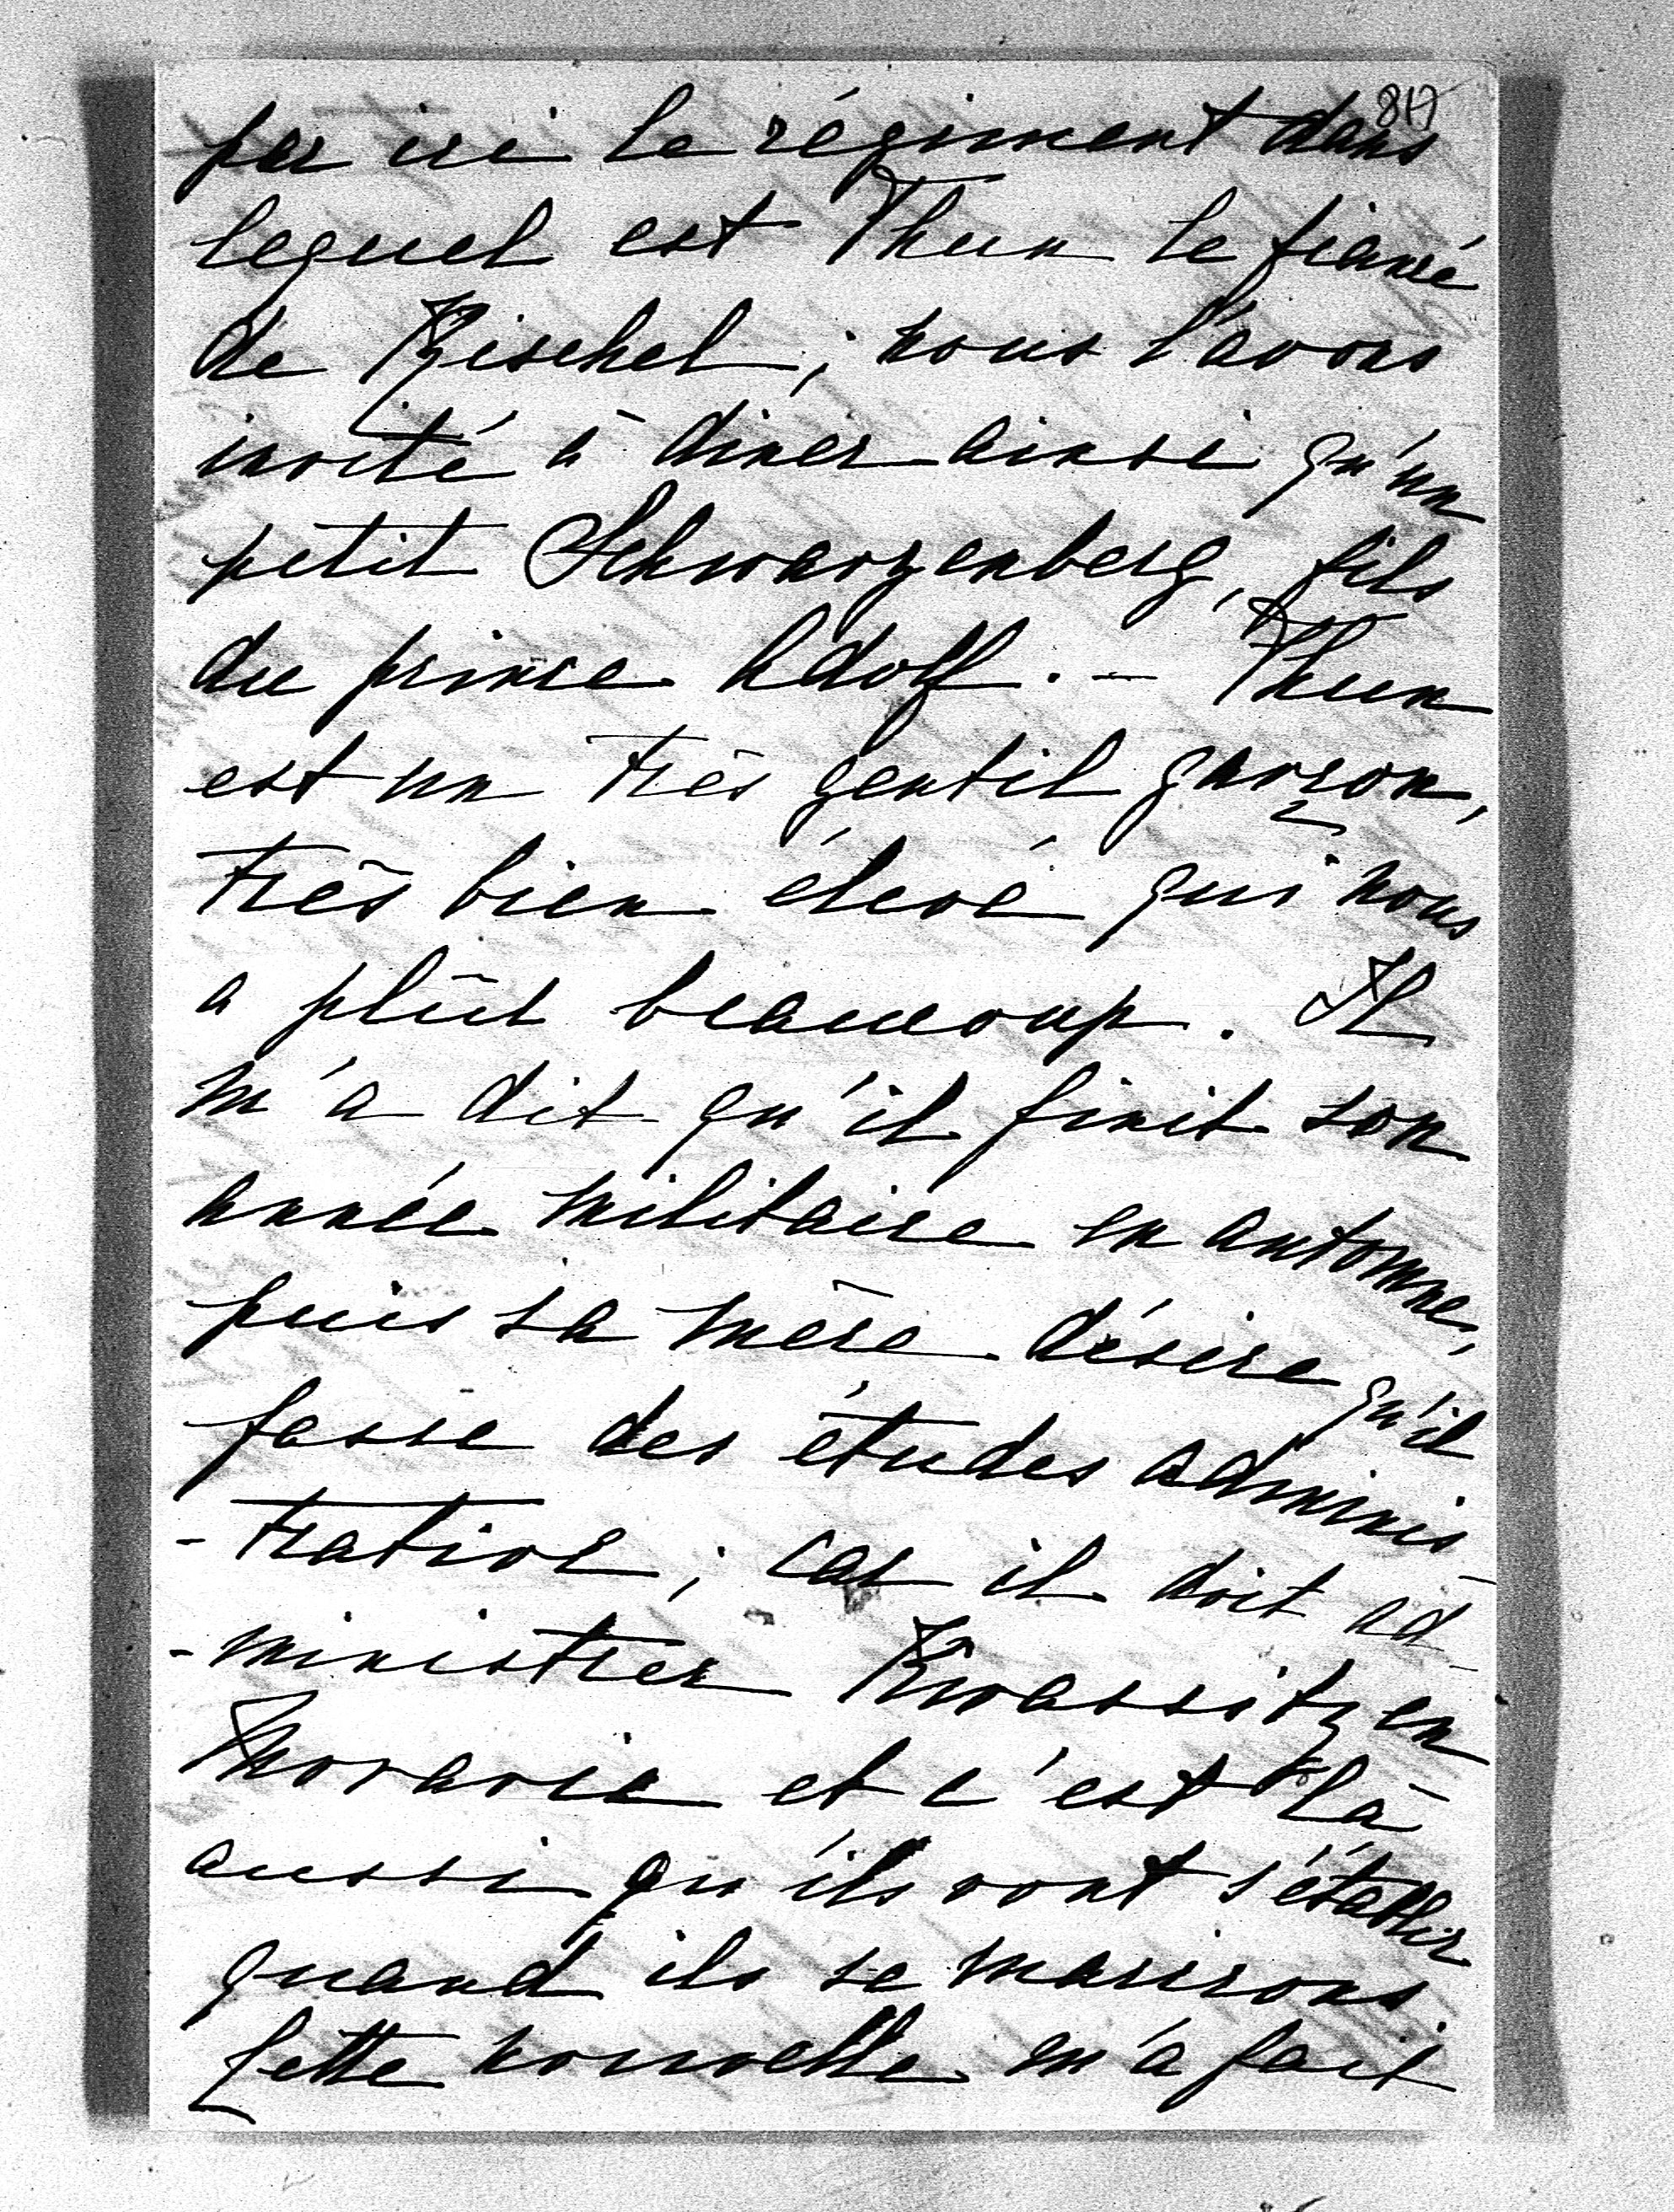 817
par ici le régiment dans
lequel est Thun le fiancé
de Rischel ; nous l'avons
invité à diner ainsi qu'un
petit Schwarzenberg, fils
du prince Adolf. — Thun
est un très gentil garçon,
très bien élevé qui nous
a plût beaucoup. Il
m'a dit qu'il finit son
année militaire en automne,
puis sa mère désire qu'il
fasse des études adminis
-trative ; car il doit ad-
-ministrer Kwassitz en
Moravie et c'est là
aussi qu'ils vont s'établir
quand ils se marirons
Cette nouvelle m'a fait